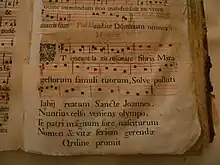 T queant laxis resonare fibris Mira
gestorum famuli tuorum, Solve polluti
labij reatum Sancte Joannes.
Nuntius celso veniens olympo,
Te patri magnum fore nasciturum
Nomen & vitæ seriem gerendæ
Ordine promit